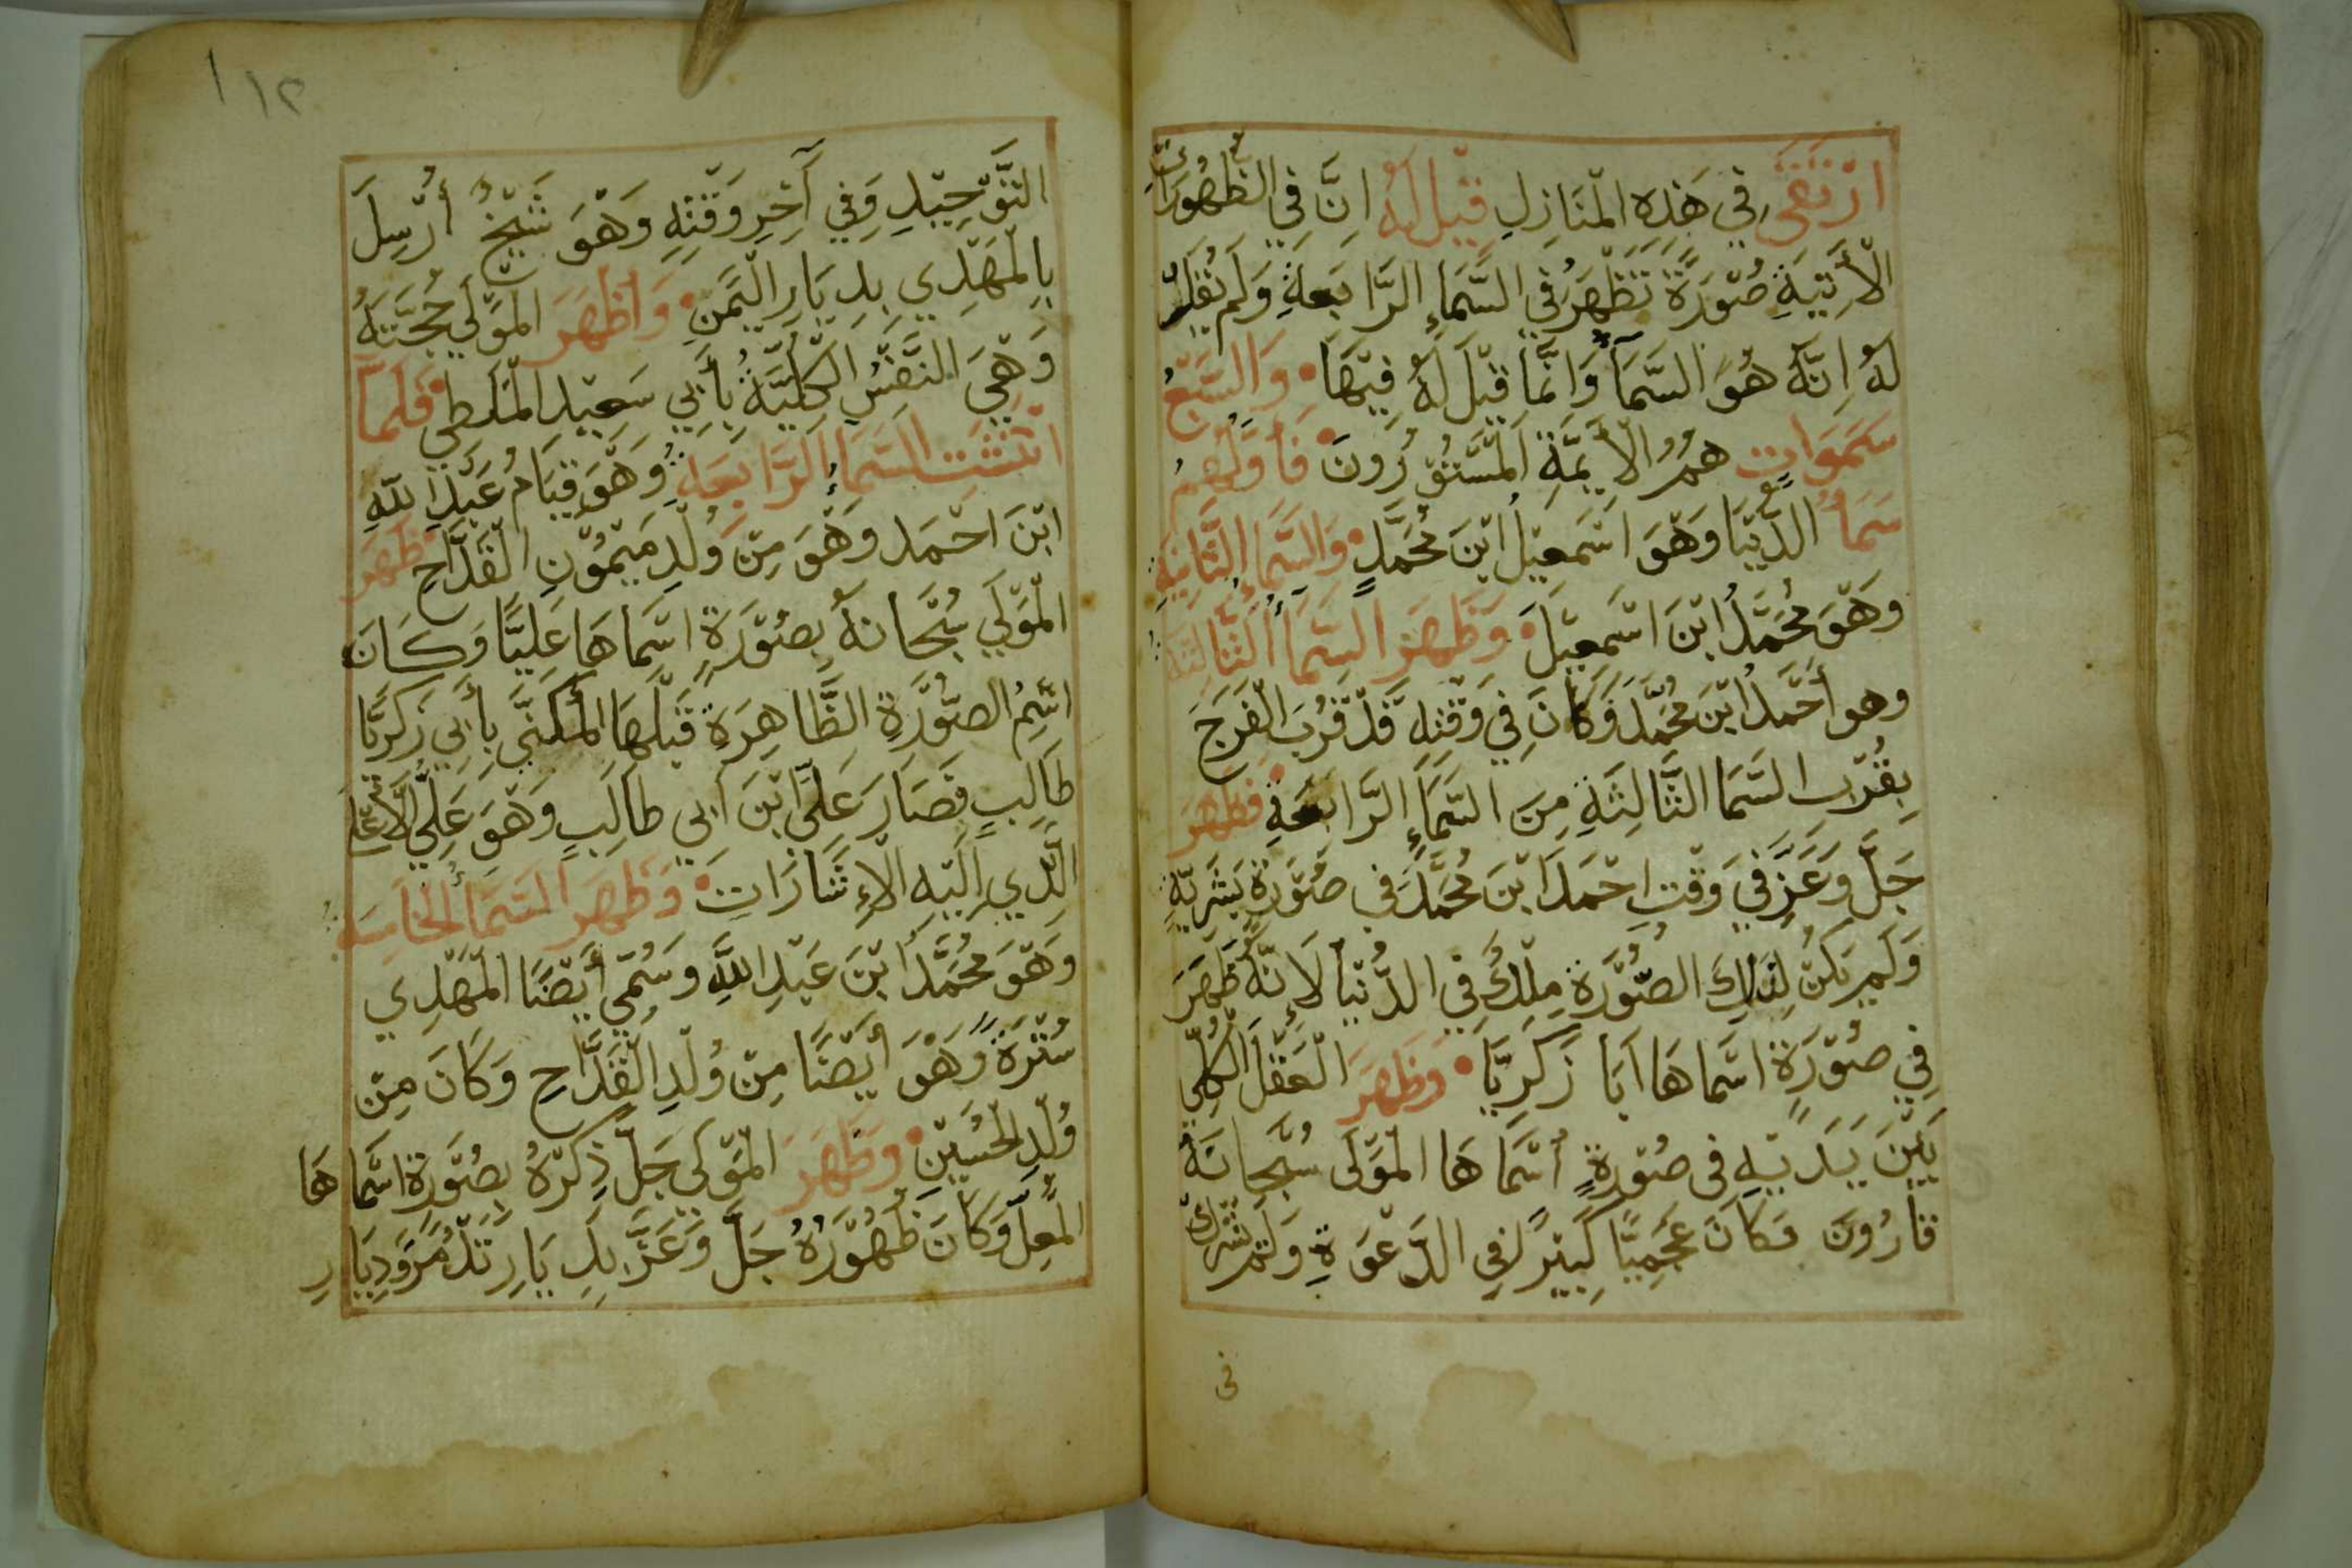 ارْتَقَى فِي هَذِهِ الْمَنَازِلِ قِيْلَ لَهُ اِنَّ فِي الظُّهُورَاتِ
الْآتِيَةِ صُوْرَةً تَظْهَرُ فِي السَّمَاءِ الرَّابِعَةِ وَلَمْ يُقَلْ
لَهُ اِنَّهُ هُوَ السَّمَآءُ وَانَّمَا قِيْلَ لَهُ فِيْهَا • وَالسَّبْعُ
سَمَوَات هُمُ الْأَيِمَّةِ الْمَسْتُوْرُونَ • فَأَوَّلُهُمْ
سَمَاُ الدُّنْيَا وَهْوَ اسْمَعِيْلُ ابْنَ مُحَمَّدٍ • وَالسَّمَاءُ الثَّانِيَةِ
وَهْوَ مُحَمَّدُ ابْنَ اسْمَعِيْلَ • وَظَهَرَ السَّمَأُ الثَّالِثَة
وهو أَحْمَدُ ابْنَ مُحَمَّدَ وَكَانَ فِي وَقْتِهِ قَدْ قَرُبَ الْفَرَجَ
بِقُرْبِ السَّمَا الثَّالِثَةِ مِنَ السَّمَاءِ الرَّابِعَةِ • فَظَهَرَ
جَلَّ وَعَزَّ فِي وَقْتِ احْمَدَ ابْنَ مُحَمَّدَ فِي صُوْرَةٍ بَشَرِيَّةٍ
وَلَمْ يَكُنْ لِتِلْكَ الصُّوْرَةِ مُلْكٌ فِي الدُّنْيَا لِأَنَّهُ ظَهَرَ
فِي صُوْرَةٍ اسْمَاهَا اَبَا زَكَرِيَّا • وَظَهَرَ الْعَقْلَ الْكُلِّي
بَيْنَ يَدَيْهِ فى صُوْرةٍ أسْمَاهَا الْمَوْلَى سُبْحَانَهُ
قَارُونَ وَكَانَ عَجَمِيًّا كَبِيْرًا فِي الدَّعْوَةِ وَلَمْ يُشْرِكْ
فى
١٢
التَّوْحِيْدِ وَفِي آخِرِ وَقْتِهِ وَهْوَ شَيْخٌ أُرْسِلَ
بِالْمَهْدِي بِدِيَارِ الْيَمَنِ • وَأَظْهَرَ الْمَوْلَى حُجَّتَهُ
وَهْيَ النَّفْسُ الْكُلِّيَّةُ بِأَبِي سَعِيْدِ الْمَلَطِي • فَلَمَّا
انْتَشَت السَّمَاءُ الرَّابِعَةِ وَهْوَ قِيَامُ عَبْدِ اللهِ
ابْنَ احْمَد وَهْوَ مِنْ وُلْدِ مَيْمُوْنِ الْقَدَّاحِ • ظَهَرَ
الْمَوْلَى سُبْحَانَهُ بِصُوْرَةٍ اسْمَاهَا عَلِيًّا وَكَانَ
اسْمُ الصُّوْرَةِ الظَّاهِرَةِ قَبْلَهَا الْمُكَنَّى بِأَبِي زَكَرِيَّا
طَالِبٍ فَصَارَ عَلِيَّ ابْنَ أَبِي طَالِبٍ وَهْوَ عَلِيُّ الْأَعْلَى
الَّذِي إِلَيْهِ الْإِشَارَاتِ • وَظَهَرَ السَّمَأُ الْخَامِسَة
وَهْوَ مُحَمَّدَ ابْنَ عَبْدِ اللَّهِ وَسُمِّي أَيْضًا الْمَهْدِي
سُتْرَةً وَهْوَ أَيْضًا مِنْ وُلْدِ الْقَدَّاحِ وَكَانَ مِنْ
وُلْدِ الْحُسَيْنِ • وَظَهَرَ الْمَوْلَى جَلَّ ذِكْرُهُ بِصُوْرَةٍ اسْمَاهَا
الْمُعِلّ وَكَانَ ظُهُوْرُهُ جَلَّ وَعَزَّ بِدِيَارِ تَدْمُرَ وَدِيَارِ